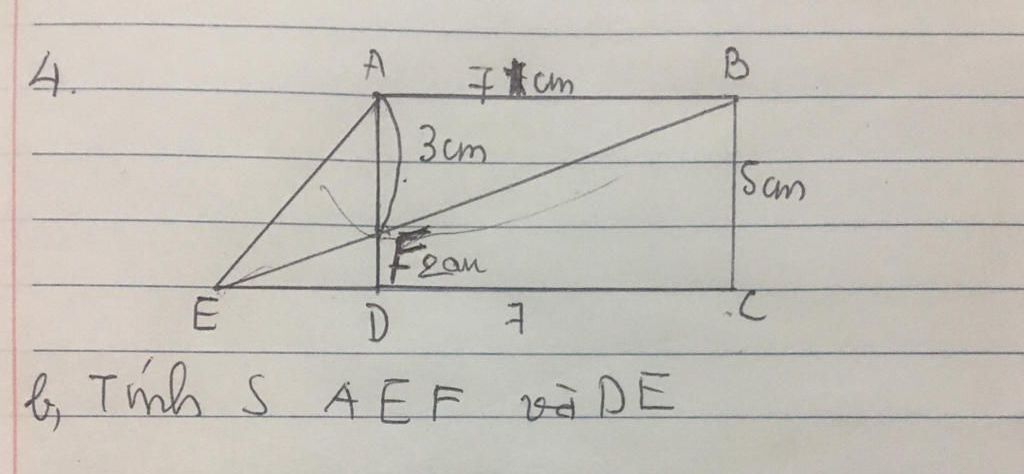 4.
A
7 cm
B
3cm
5cm
F 2cm
E
D
7
C
b, Tính S AEF và DE